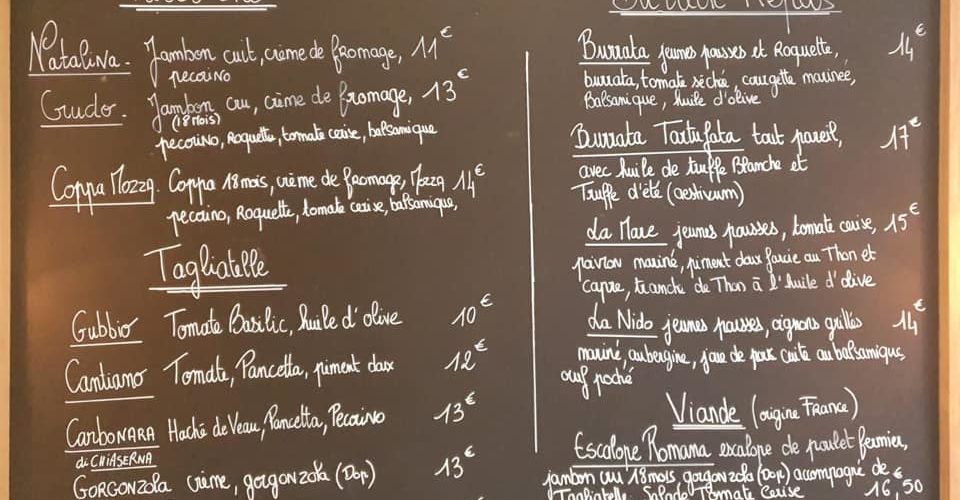 Natalina. Jambon cuit, crème de fromage, 11€
pecorino
Crudo. Jambon cru, crème de fromage, 13€
(18 Mois)
pecorino, Roquette, tomate cerise, balsamique
Coppa Mozza. Coppa 18 mois, crème de fromage, Mozza 14€
pecorino, Roquette, tomate cerise, balsamique,
Tagliatelle
Gubbio Tomate Basilic, huile d'olive 10€
Cantiano Tomate, Pancetta, piment doux 12€
CarbonARA Haché de Veau, Pancetta, Pecorino 13€
di CHIASERNA
GORGONZOLA crème, gorgonzola (Dop) 13€
Burrata jeunes pousses et Roquette, 14€
burrata, tomate séché, courgette marinée,
Balsamique, huile d'olive
Burrata Tartufata tout pareil, 17€
avec huile de truffe Blanche et
Truffe d'été (aestivum)
La Mare jeunes pousses, tomate cerise, 15€
poivron mariné, piment doux farcie au Thon et
capre, tranche de Thon à l'huile d'olive
La Nido jeunes pousses, oignons grillés 14€
mariné, aubergine, joue de porc cuite au balsamique,
oeuf poché
Viande (origine France)
Escalope Romana escalope de poulet fermier,
jambon cru 18 mois, gorgonzola (Dop) accompagné de
Tagliatelle, Salade Tomate Cerise 16€50